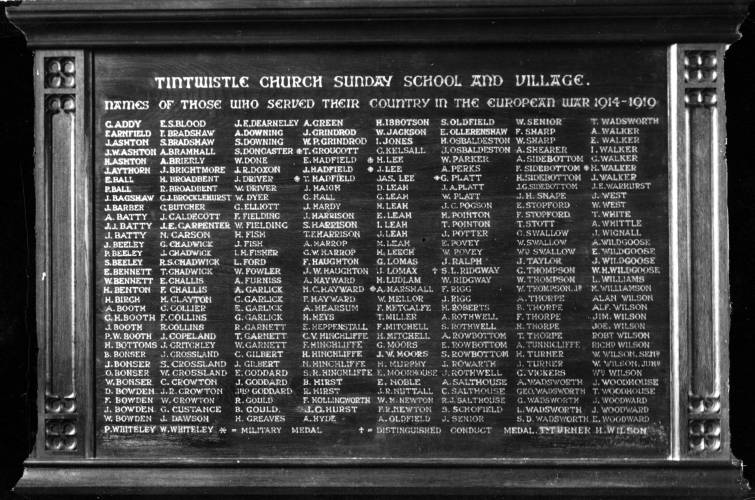 TINTWISTLE CHURCH SUNDAY SCHOOL AND VILLAGE.
NAMES OF THOSE WHO SERVED THEIR COUNTRY IN THE EUROPEAN WAR 1914-1919
C. ADDY E.S. BLOOD J.E. DEARNELEY A. GREEN H. IBBOTSON S. OLDFIELD W. SENIOR T. WADSWORTH
F. ARNFIELD F. BRADSHAW A. DOWNING J. GRINDROD W. JACKSON E. OLLERENSHAW F. SHARP A. WALKER
J. ASHTON S. BRADSHAW S. DOWNING W.P. GRINDROD I. JONES H. OSBALDESTON W. SHARP E. WALKER
J.W. ASHTON A. BRAMHALL S. DONCASTER ✶ T. GROUCOTT G. KELSALL J. OSBALDESTON A. SHEARER I. WALKER
H. ASHTON A. BRIERLY W. DONE E. HADFIELD ✶ H. LEE W. PARKER A. SIDEBOTTOM G. WALKER
J. AYTHORN J. BRIGHTMORE J.R. DOXON J. HADFIELD ✶ J. LEE A. PERKS F. SIDEBOTTOM ✶ H. WALKER
E. BALL H. BROADBENT J. DRIVER ✶ T. HADFIELD JAS. LEE ✶ G. PLATT H. SIDEBOTTOM J. WALKER
P. BALL R. BROADBENT W. DRIVER J. HAIGH D. LEAH J.A. PLATT J.G. SIDEBOTTOM J.E. WARHURST
J. BAGSHAW G.J. BROCKLEHURST W. DYER G. HALL G. LEAH W. PLATT J.H. SNAPE J. WEST
J. BARBER G. BUTCHER G. ELLIOTT J. HARDY M. LEAH J.C. POGSON E. STOPFORD W. WEST
A. BATTY J. CALDECOTT F. FIELDING J. HARRISON E. LEAH H. POINTON F. STOPFORD T. WHITE
J.J. BATTY J.E. CARPENTER W. FIELDING S. HARRISON I. LEAH T. POINTON T. STOTT A. WHITTLE
I. BATTY N. CARSON H. FISH T.E. HARRISON J. LEAH J. POTTER C. SWALLOW J. WIGNALL
J. BEELEY G. CHADWICK J. FISH A. HARROP M. LEAH E. POVEY W. SWALLOW A. WILDGOOSE
P. BEELEY J. CHADWICK I.H. FISHER G.W. HARROP H. LEECH W. POVEY WM SWALLOW E. WILDGOOSE
S. BEELEY R.S. CHADWICK L. FORD F. HAUGHTON G. LOMAS J. RALPH J. TAYLOR J. WILDGOOSE
E. BENNETT T. CHADWICK W. FOWLER J.W. HAUGHTON J. LOMAX † S.L. RIDGWAY G. THOMPSON W.H. WILDGOOSE
W. BENNETT E. CHALLIS A. FURNISS A. HAYWARD H. LUDLAM W. RIDGWAY W. THOMPSON L. WILLIAMS
H. BENTON F. CHALLIS A. GARLICK H.C. HAYWARD ✶ A. MARSHALL F. RIGG W. THOMPSON. JR H. WILLIAMSON
H. BIRCH M. CLAYTON C. GARLICK F. HAYWARD W. MELLOR J. RIGG A. THORPE ALAN WILSON
A. BOOTH G. COLLIER C. GARLICK A. HEARSUM F. METCALFE H. ROBERTS B. THORPE ALF. WILSON
C.H. BOOTH F. COLLINS G. GARLICK H. KEYS T. MILLER A. ROTHWELL F. THORPE JIM. WILSON
J. BOOTH R. COLLINS R. GARNETT E. HEPPENSTALL F. MITCHELL S. ROTHWELL H. THORPE JOE. WILSON
P.W. BOOTH J. COPELAND T. GARNETT C.V. HINCHLIFFE H. MITCHELL A. ROWBOTTOM T. THORPE ROBT WILSON
H. BOTTOMS J. GRITCHLEY W. GARNETT F. HINCHLIFFE G. MOORS E. ROWBOTTOM A. TUNNICLIFFE RICHD WILSON
B. BONSER J. CROSSLAND C. GILBERT H. HINCHLIFFE J.W. MOORS S. ROWBOTTOM H. TURNER W. WILSON, SENR
J. BONSER S. CROSSLAND J. GILBERT N. HINCHLIFFE H. MURPHY J. ROWARTH J. TURNER W. WILSON, JUNR
O. BONSER W. CROSSLAND E. GODDARD S.R. HINCHLIFFE E. MOORHOUSE J. ROTHWELL G. VICKERS WM WILSON
W. BONSER C. CROWTON J. GODDARD B. HIRST E. NOBLE A. SALTHOUSE A. WADSWORTH J. WOODHOUSE
D. BOWDEN J.R. CROWTON JNO GODDARD E. HIRST J.R. NUTTALL C. SALTHOUSE GEO. WADSWORTH T. WOODHOUSE
F. BOWDEN W. CROWTON R. GOULD F. HOLLINGWORTH W.Y. NEWTON R.J. SALTHOUSE G. WADSWORTH J. WOODWARD
J. BOWDEN G. CUSTANCE B. GOULD J.G. HURST F.R. NEWTON B. SCHOFIELD L. WADSWORTH J. WOODWARD
W. BOWDEN J. DAWSON H. GREAVES A. HYDE A. OLDFIELD J. SENIOR S.D. WADSWORTH E. WOODWARD
P. WHITELEY W. WHITELEY ✶ = MILITARY MEDAL † = DISTINGUISHED CONDUCT MEDAL. T. TURNER H. WILSON.